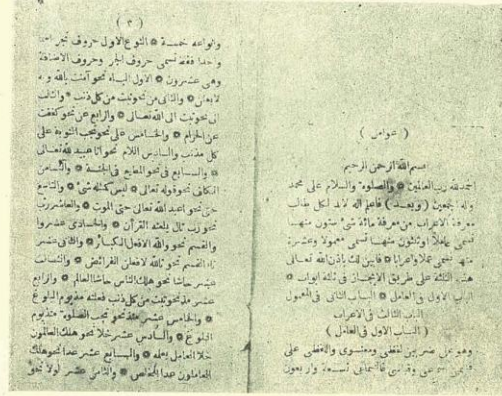 ( عوامل )
بسم الله الرحمن الرحيم
الحمد لله رب العالمين * والصلوة والسلام على محمد
وآله اجمعين ( وبعد ) فاعلم انه لابد لكل طالب
معرفة الاعراب من معرفة مائة شئ ستون منها
تسمى عاملا وثلثون منها تسمى معمولا وعشرة
منها تسمى عملا واعرابا * فابين لك باذن الله تعالى
هذه الثلثة على طريق الايجاز فى ثلثة ابواب *
الباب الاول فى العامل * الباب الثانى فى المعمول
الباب الثالث فى الاعراب
( الباب الاول فى العامل )
وهو على ضربين لفظى ومعنوى واللفظى على
ضربين سماعى وقياسى فالسماعى تسعة واربعون
( ٣ )
وانواعه خمسة * النوع الاول حروف تجر اسما
واحدا فقط تسمى حروف الجر وحروف الاضافة
وهى عشرون * الاول الباء نحو آمنت بالله و به
لابعثن * والثانى من نحو تبت من كل ذنب * والثالث
الى نحو تبت الى الله تعالى * والرابع عن نحو كففت
عن الحرام * والخامس على نحو تجب التوبة على
كل مذنب * والسادس اللام نحو انا عبيد لله تعالى
* والسابع فى نحو المطيع فى الجنة * والثامن
الكاف نحو قوله تعالى * ليس كمثله شئ * والتاسع
حتى نحو اعبد الله تعالى حتى الموت * والعاشر رب
نحو رب تال يلعنه القرآن * والحادى عشر واو
القسم نحو والله لا افعل الكبائر * والثانى عشر
تاء القسم نحو تالله لافعلن الفرائض * والثالث
عشر حاشا نحو هلك الناس حاشا العالم * والرابع
عشر مذ نحو تبت من كل ذنب فعلته مذ يوم البلوغ
* والخامس عشر منذ نحو تجب الصلوة منذ يوم
البلوغ * والسادس عشر خلا نحو هلك العالمون
خلا العامل بعلمه * والسابع عشر عدا نحو هلك
العاملون عدا المخلص * والثامن عشر لولا نحو